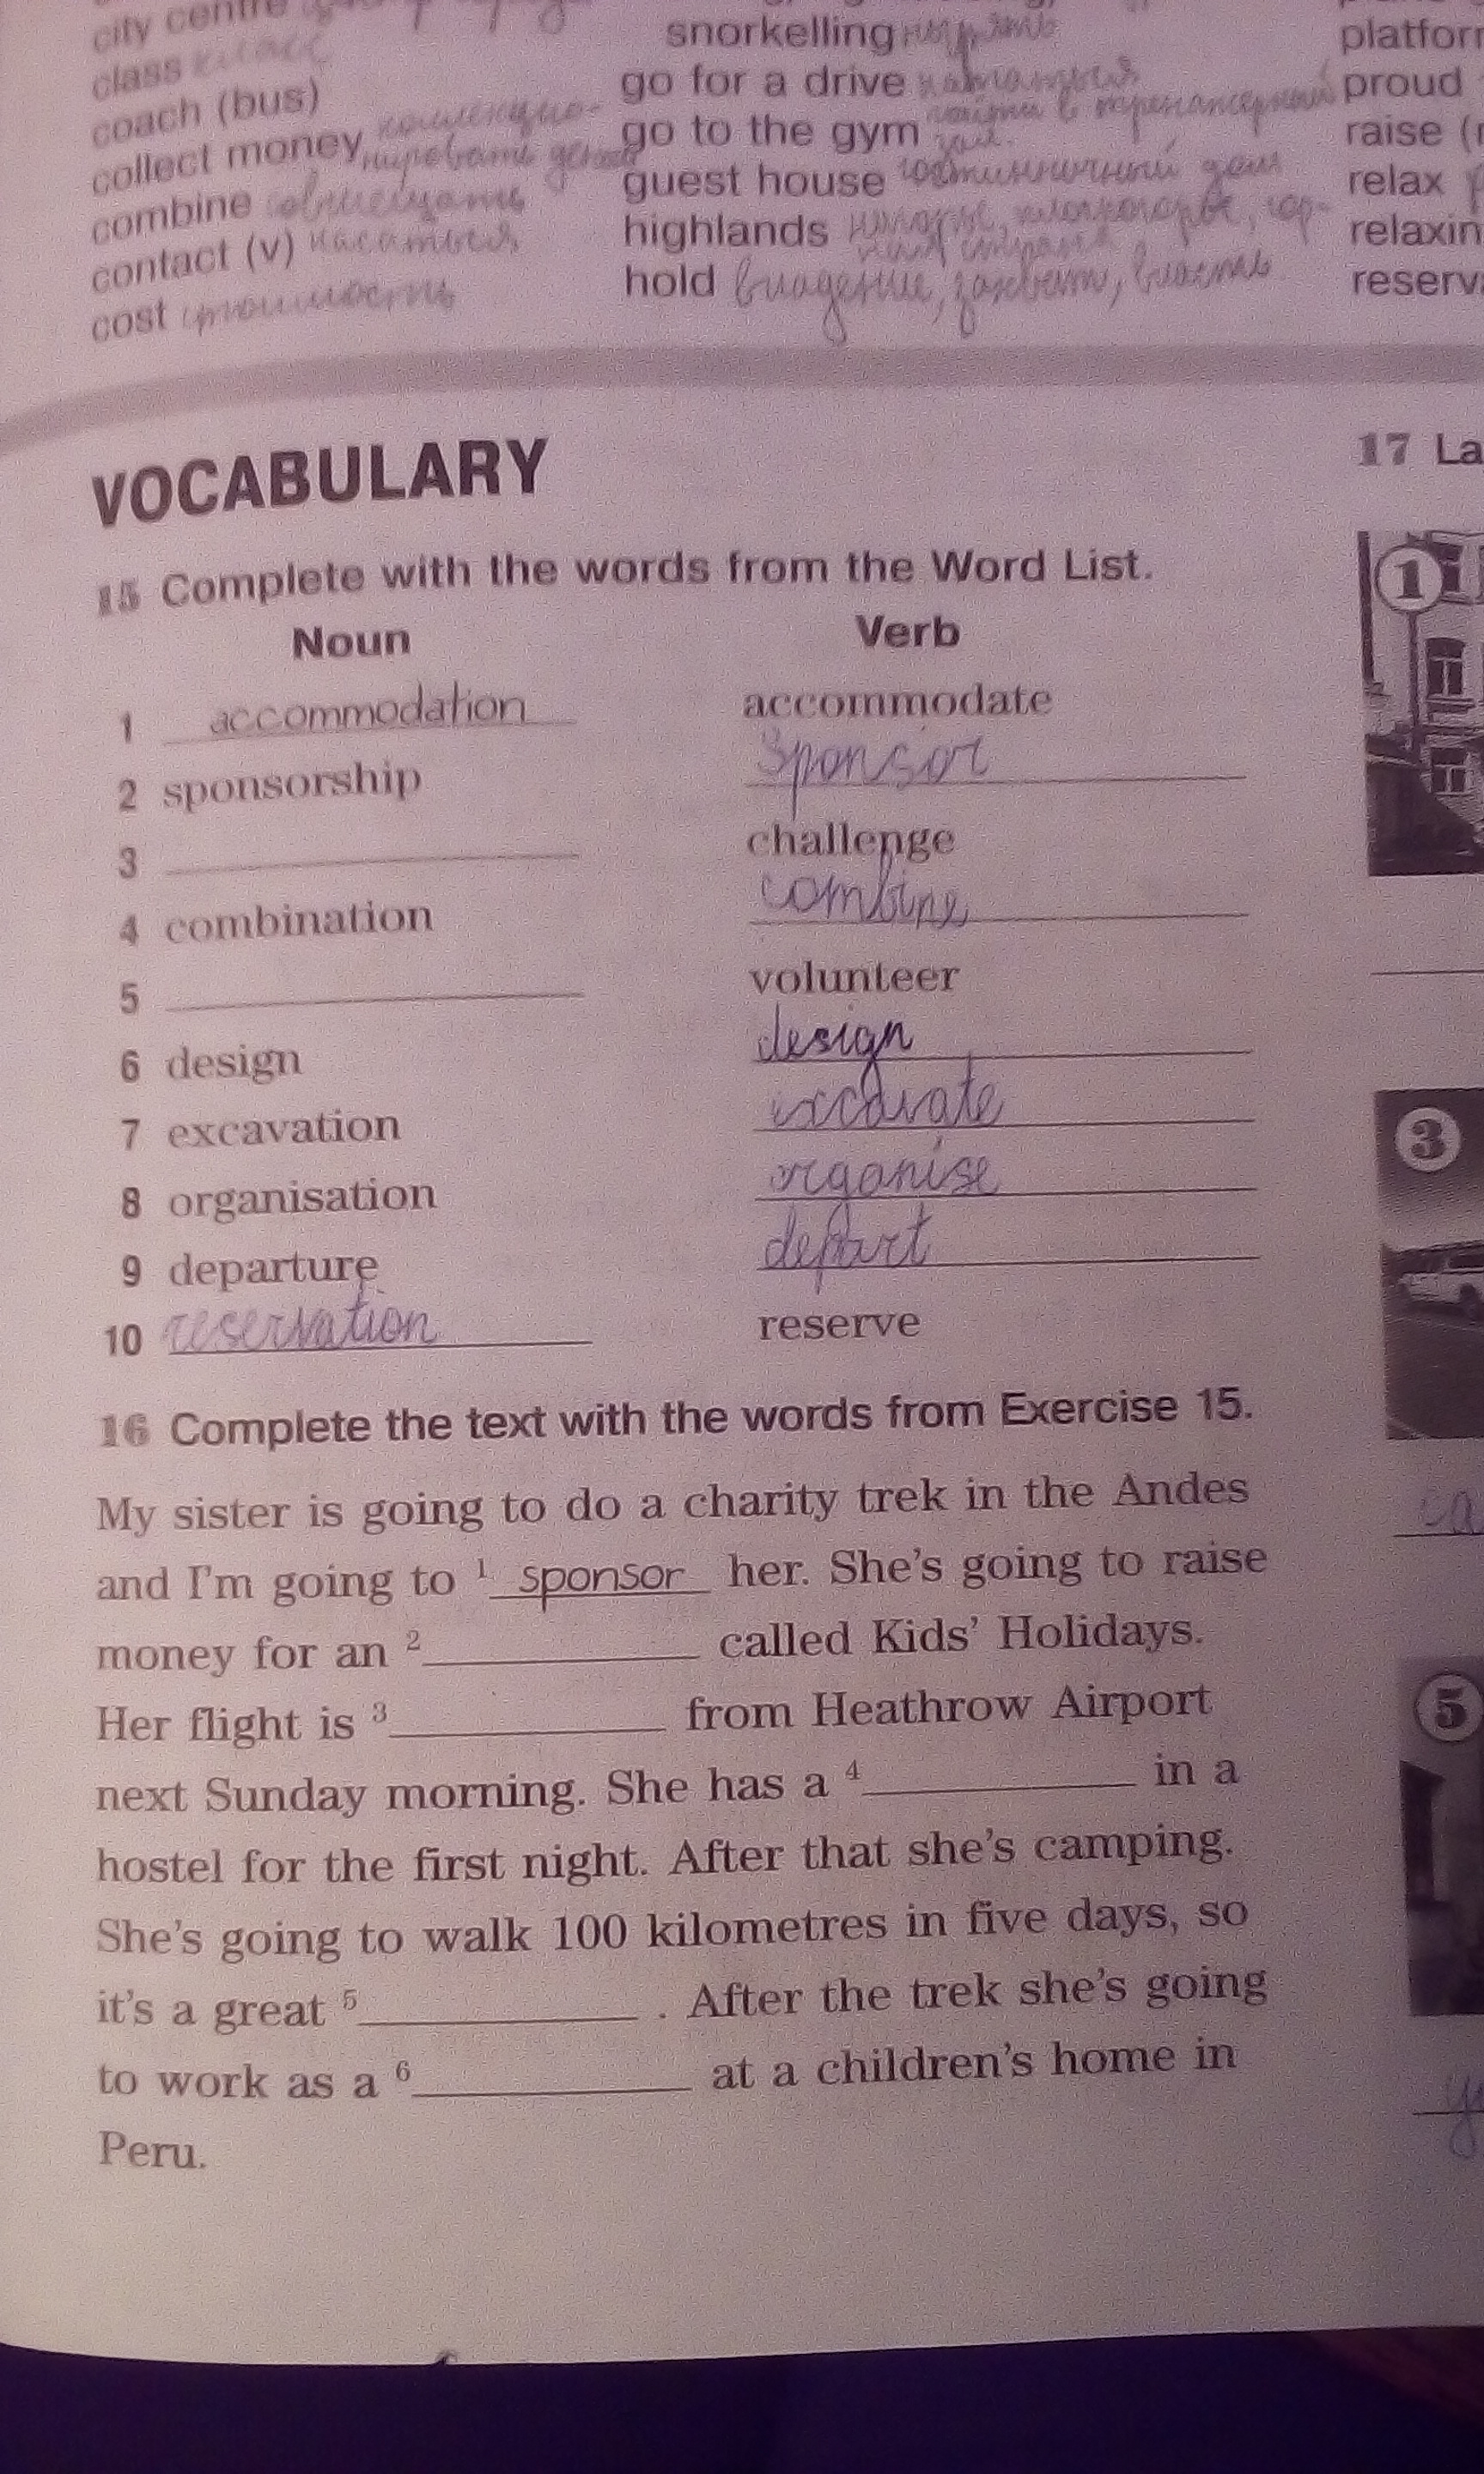 city centre
class класс
coach (bus)
collect money
combine совмещать
contact (v) касаться
cost
snorkelling нырять
go for a drive кататься
go to the gym пойти в тренажерный
зал.
guest house гостиничный дом
highlands
hold владение, захват, власть
platfor
proud
raise (
relax
relaxin
reserv
VOCABULARY
15 Complete with the words from the Word List.
Noun Verb
1 accommodation accommodate
2 sponsorship sponsor
3 challenge
4 combination combine
5 volunteer
6 design design
7 excavation excavate
8 organisation organise
9 departure depart
10 reservation reserve
16 Complete the text with the words from Exercise 15.
My sister is going to do a charity trek in the Andes
and I'm going to 1 sponsor her. She's going to raise
money for an 2 called Kids' Holidays.
Her flight is 3 from Heathrow Airport
next Sunday morning. She has a 4 in a
hostel for the first night. After that she's camping.
She's going to walk 100 kilometres in five days, so
it's a great 5 . After the trek she's going
to work as a 6 at a children's home in
Peru.
17 La
1
3
ca
5
y